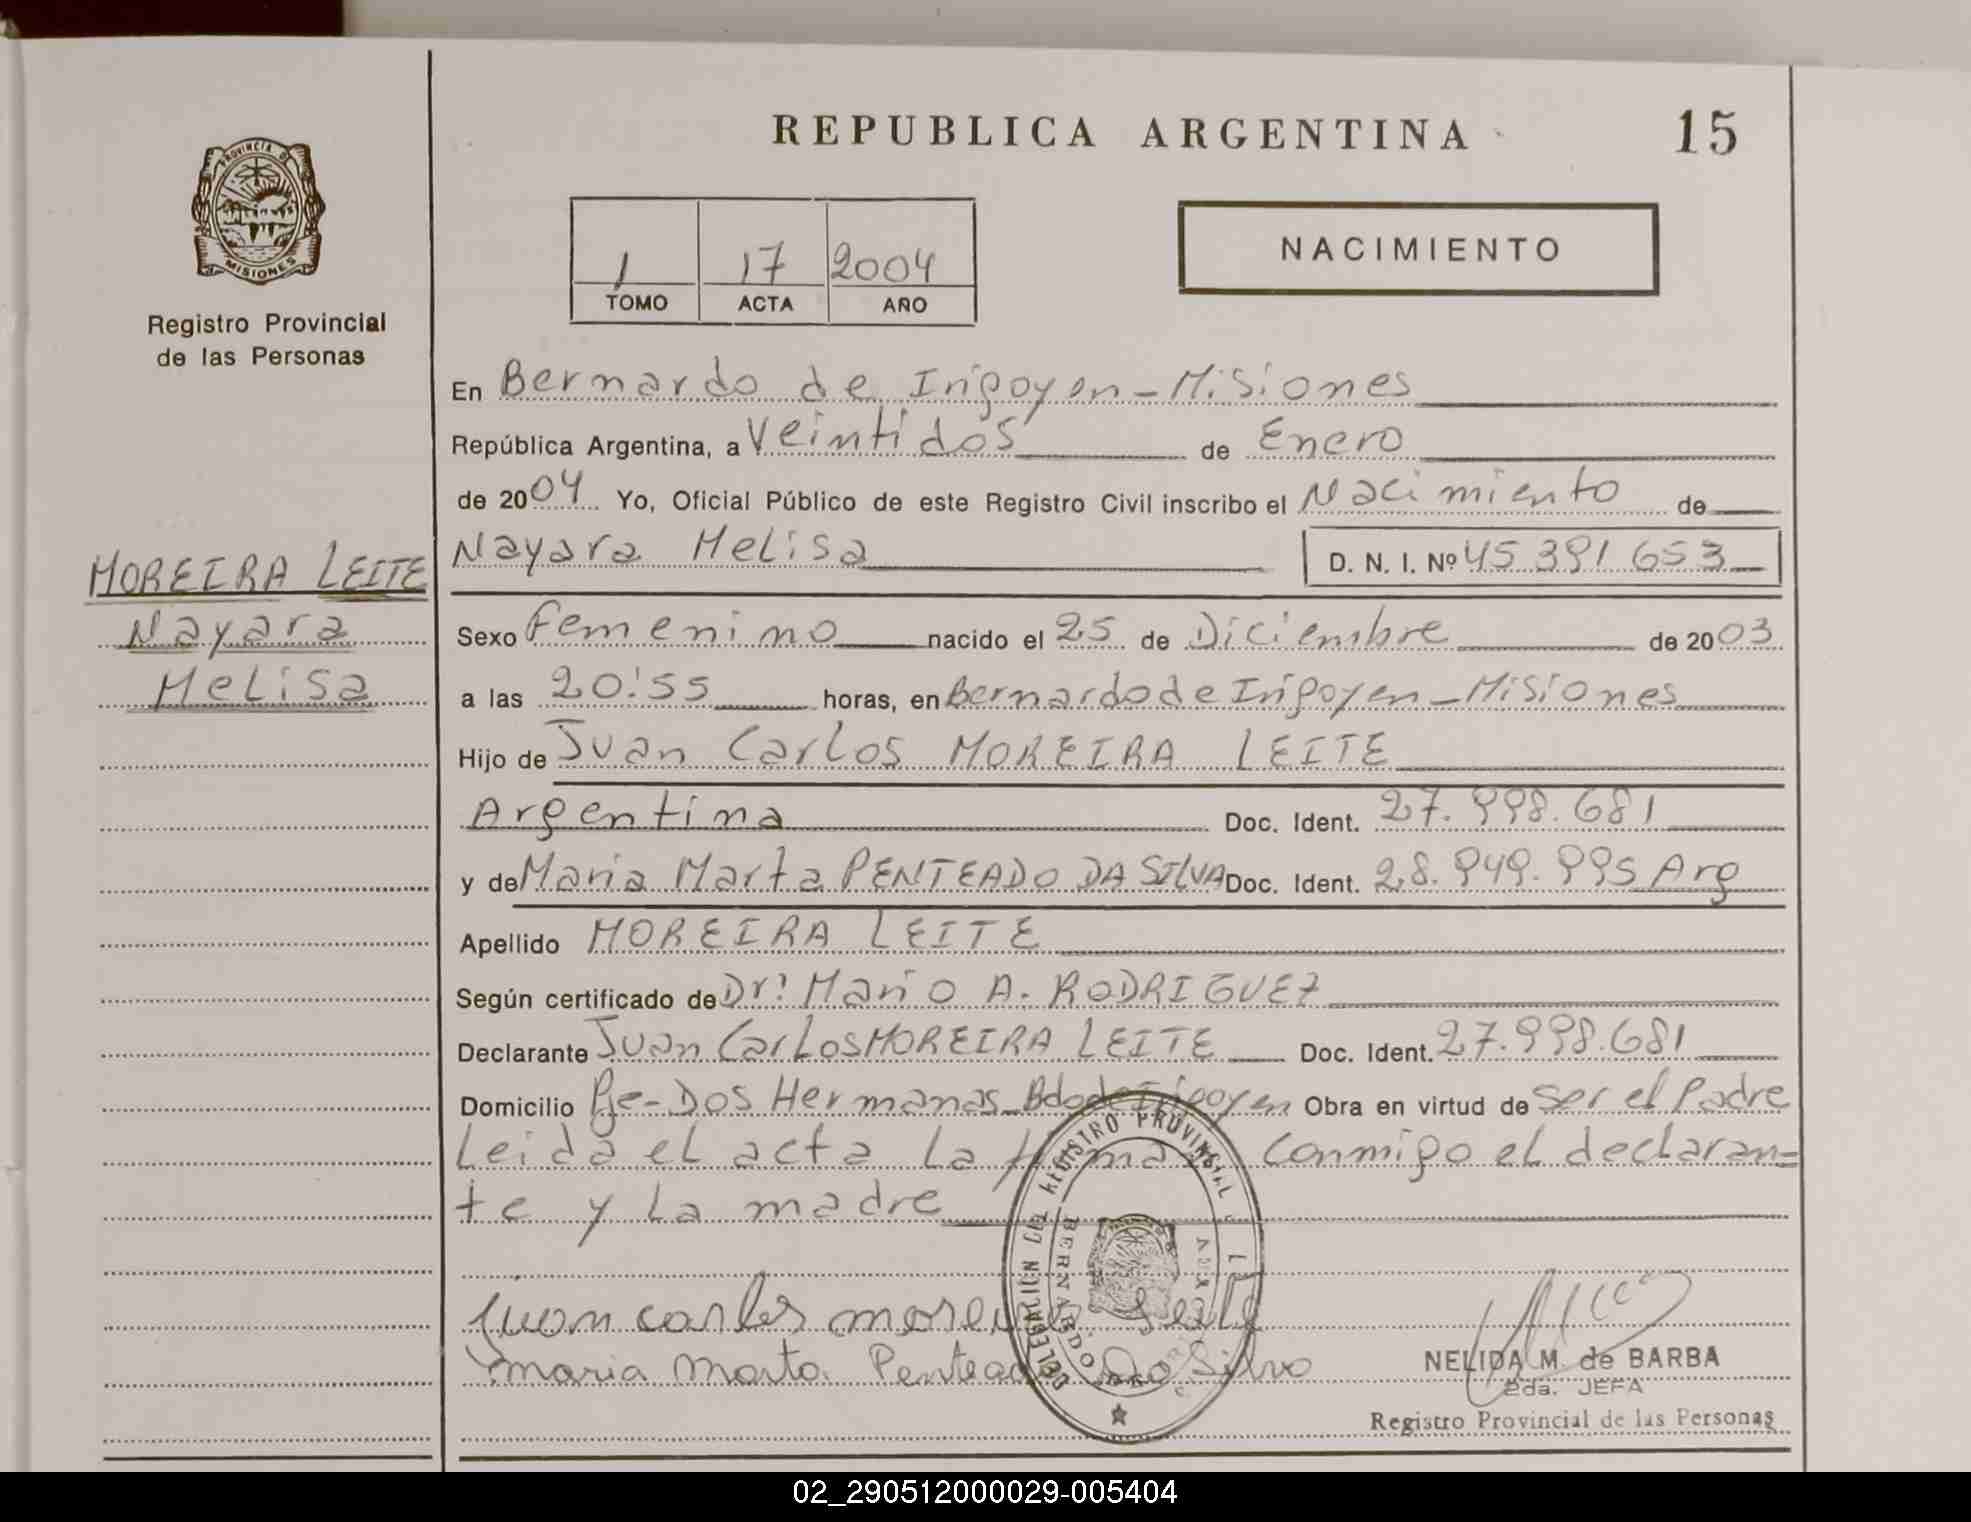 REPUBLICA ARGENTINA
15
PROVINCIA DE
MISIONES
Registro Provincial
de las Personas
1 17 2004
TOMO ACTA AÑO
NACIMIENTO
En Bernardo de Irigoyen - Misiones
República Argentina, a Veintidos de Enero
de 2004 Yo, Oficial Público de este Registro Civil inscribo el Nacimiento de
Nayara Melisa D. N. I. Nº 45.391.653
MOREIRA LEITE
Nayara
Melisa
Sexo Femenino nacido el 25 de Diciembre de 2003
a las 20:55 horas, en Bernardo de Irigoyen - Misiones
Hijo de Juan Carlos MOREIRA LEITE
Argentina Doc. Ident. 27.998.681
y de Maria Marta PENTEADO DA SILVA Doc. Ident. 28.949.995 Arg
Apellido MOREIRA LEITE
Según certificado de Dr: Mario A. RODRIGUEZ
Declarante Juan Carlos MOREIRA LEITE Doc. Ident. 27.998.681
Domicilio Pje - Dos Hermanas - Bdo de Irigoyen Obra en virtud de ser el Padre
Leida el acta la firma conmigo el declaran=
te y la madre
DELEGACION DEL REGISTRO PROVINCIAL
BERNARDO
Juan carlos moreira Leite
maria marta Penteado Da Silva
NELIDA M. de BARBA
2da. JEFA
Registro Provincial de las Personas
02_290512000029-005404